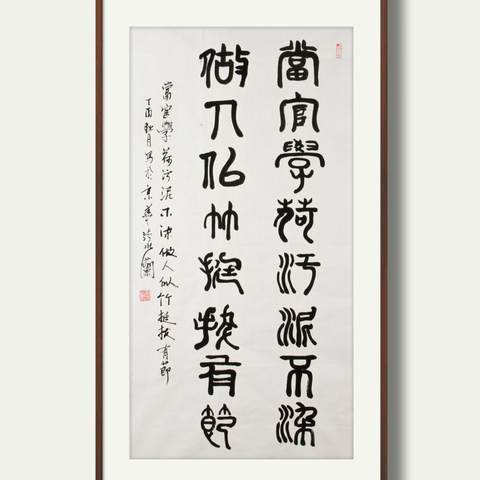 當官學荷汚泥不染
做人似竹挺拔有節
當官學荷污泥不染做人似竹挺拔有節
丁酉秋月写於京華